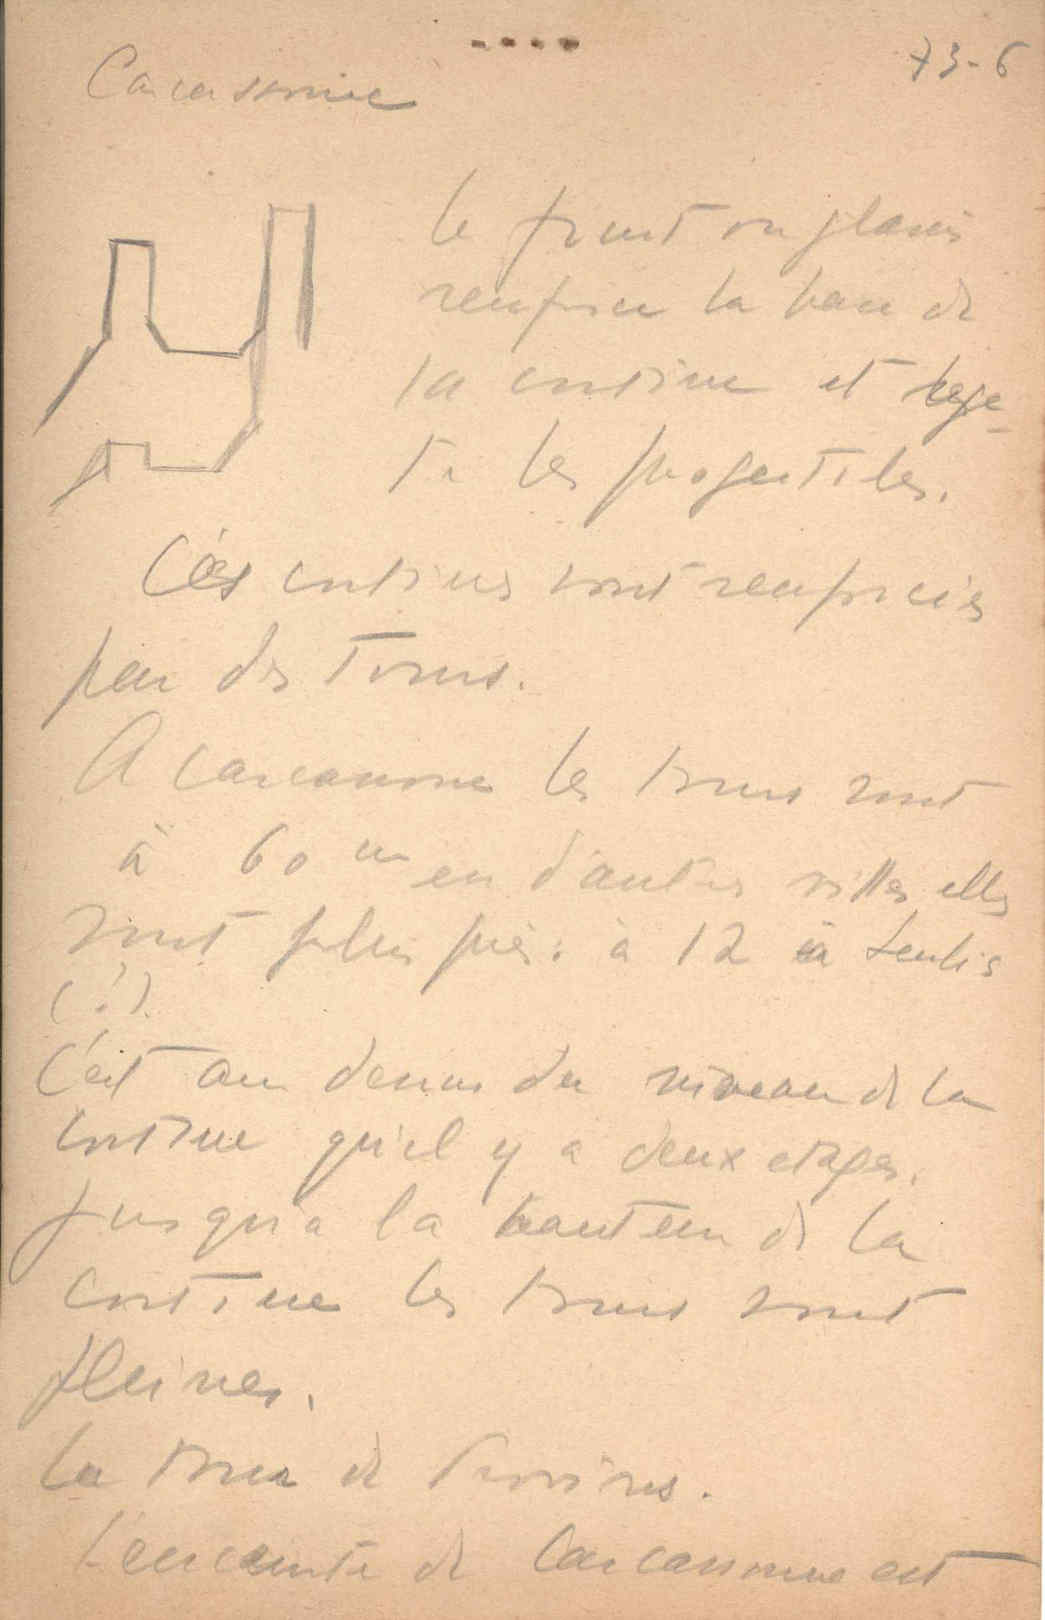 73-6
Carcassonne
le fruit ou glacis
renforce la base de
la courtine et rejet-
te les projectiles.
Ces courtines sont renforcées
par des Tours.
A Carcassonne les tours sont
à 60 m en d'autres villes elles
sont plus près. à 12 à Senlis
(?)
C'est au dessus du niveau de la
courtine qu'il y a deux etages.
jusqu'à la hauteur de la
courtine les tours sont
pleines.
La tour de Provins.
L'enceinte de Carcassonne est